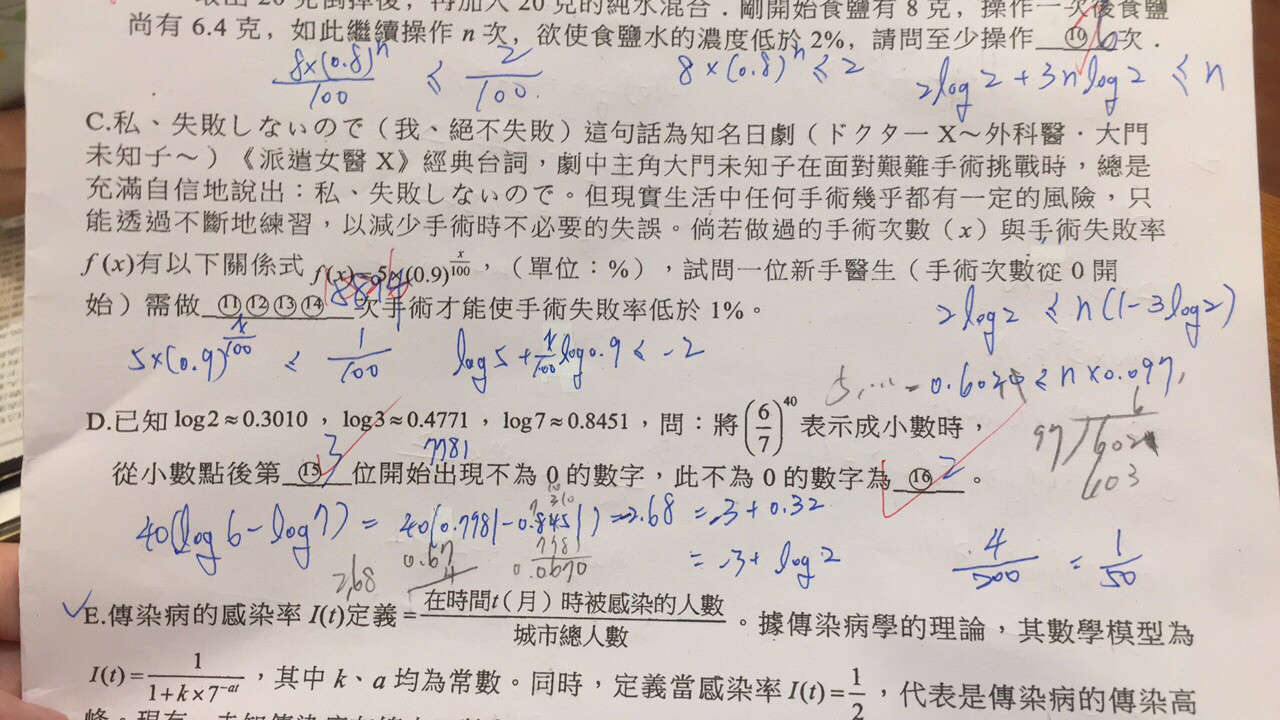 取出 20 克倒掉後，再加入 20 克的純水混合．剛開始食鹽有 8 克，操作一次後食鹽
尚有 6.4 克，如此繼續操作 n 次，欲使食鹽水的濃度低於 2%，請問至少操作 ⑲ 6 次．
8×(0.8)^n/100 ≤ 2/100
8×(0.8)^n ≤ 2
2log2+3nlog2 ≤ n
C.私、失敗しないので（我、絕不失敗）這句話為知名日劇（ドクターX～外科醫．大門
未知子～）《派遣女醫 X》經典台詞，劇中主角大門未知子在面對艱難手術挑戰時，總是
充滿自信地說出：私、失敗しないので。但現實生活中任何手術幾乎都有一定的風險，只
能透過不斷地練習，以減少手術時不必要的失誤。倘若做過的手術次數（x）與手術失敗率
f (x)有以下關係式 f(x)=5×(0.9)^(x/100)，（單位：%），試問一位新手醫生（手術次數從 0 開
始）需做 ⑪⑫⑬⑭ 次手術才能使手術失敗率低於 1%。
2log2 ≤ n(1-3log2)
5×(0.9)^(x/100) ≤ 1/100
log5+x/100 log0.9 ≤ -2
≤ n×0.097
D.已知 log2≈0.3010，log3≈0.4771，log7≈0.8451，問：將(6/7)^40 表示成小數時，
7781
從小數點後第 ⑮ 3 位開始出現不為 0 的數字，此不為 0 的數字為 ⑯ 2 。
40(log6-log7) = 40(0.7781-0.8451) = -2.68 = -3+0.32
= -3+log2
4/200 = 1/50
2.68
0.67
4
7781
0.0670
97 602
6
603
E.傳染病的感染率 I(t)定義=在時間t（月）時被感染的人數/城市總人數。據傳染病學的理論，其數學模型為
I(t)=1/(1+k×7^(-at))，其中 k、a 均為常數。同時，定義當感染率 I(t)=1/2，代表是傳染病的傳染高
峰。現有